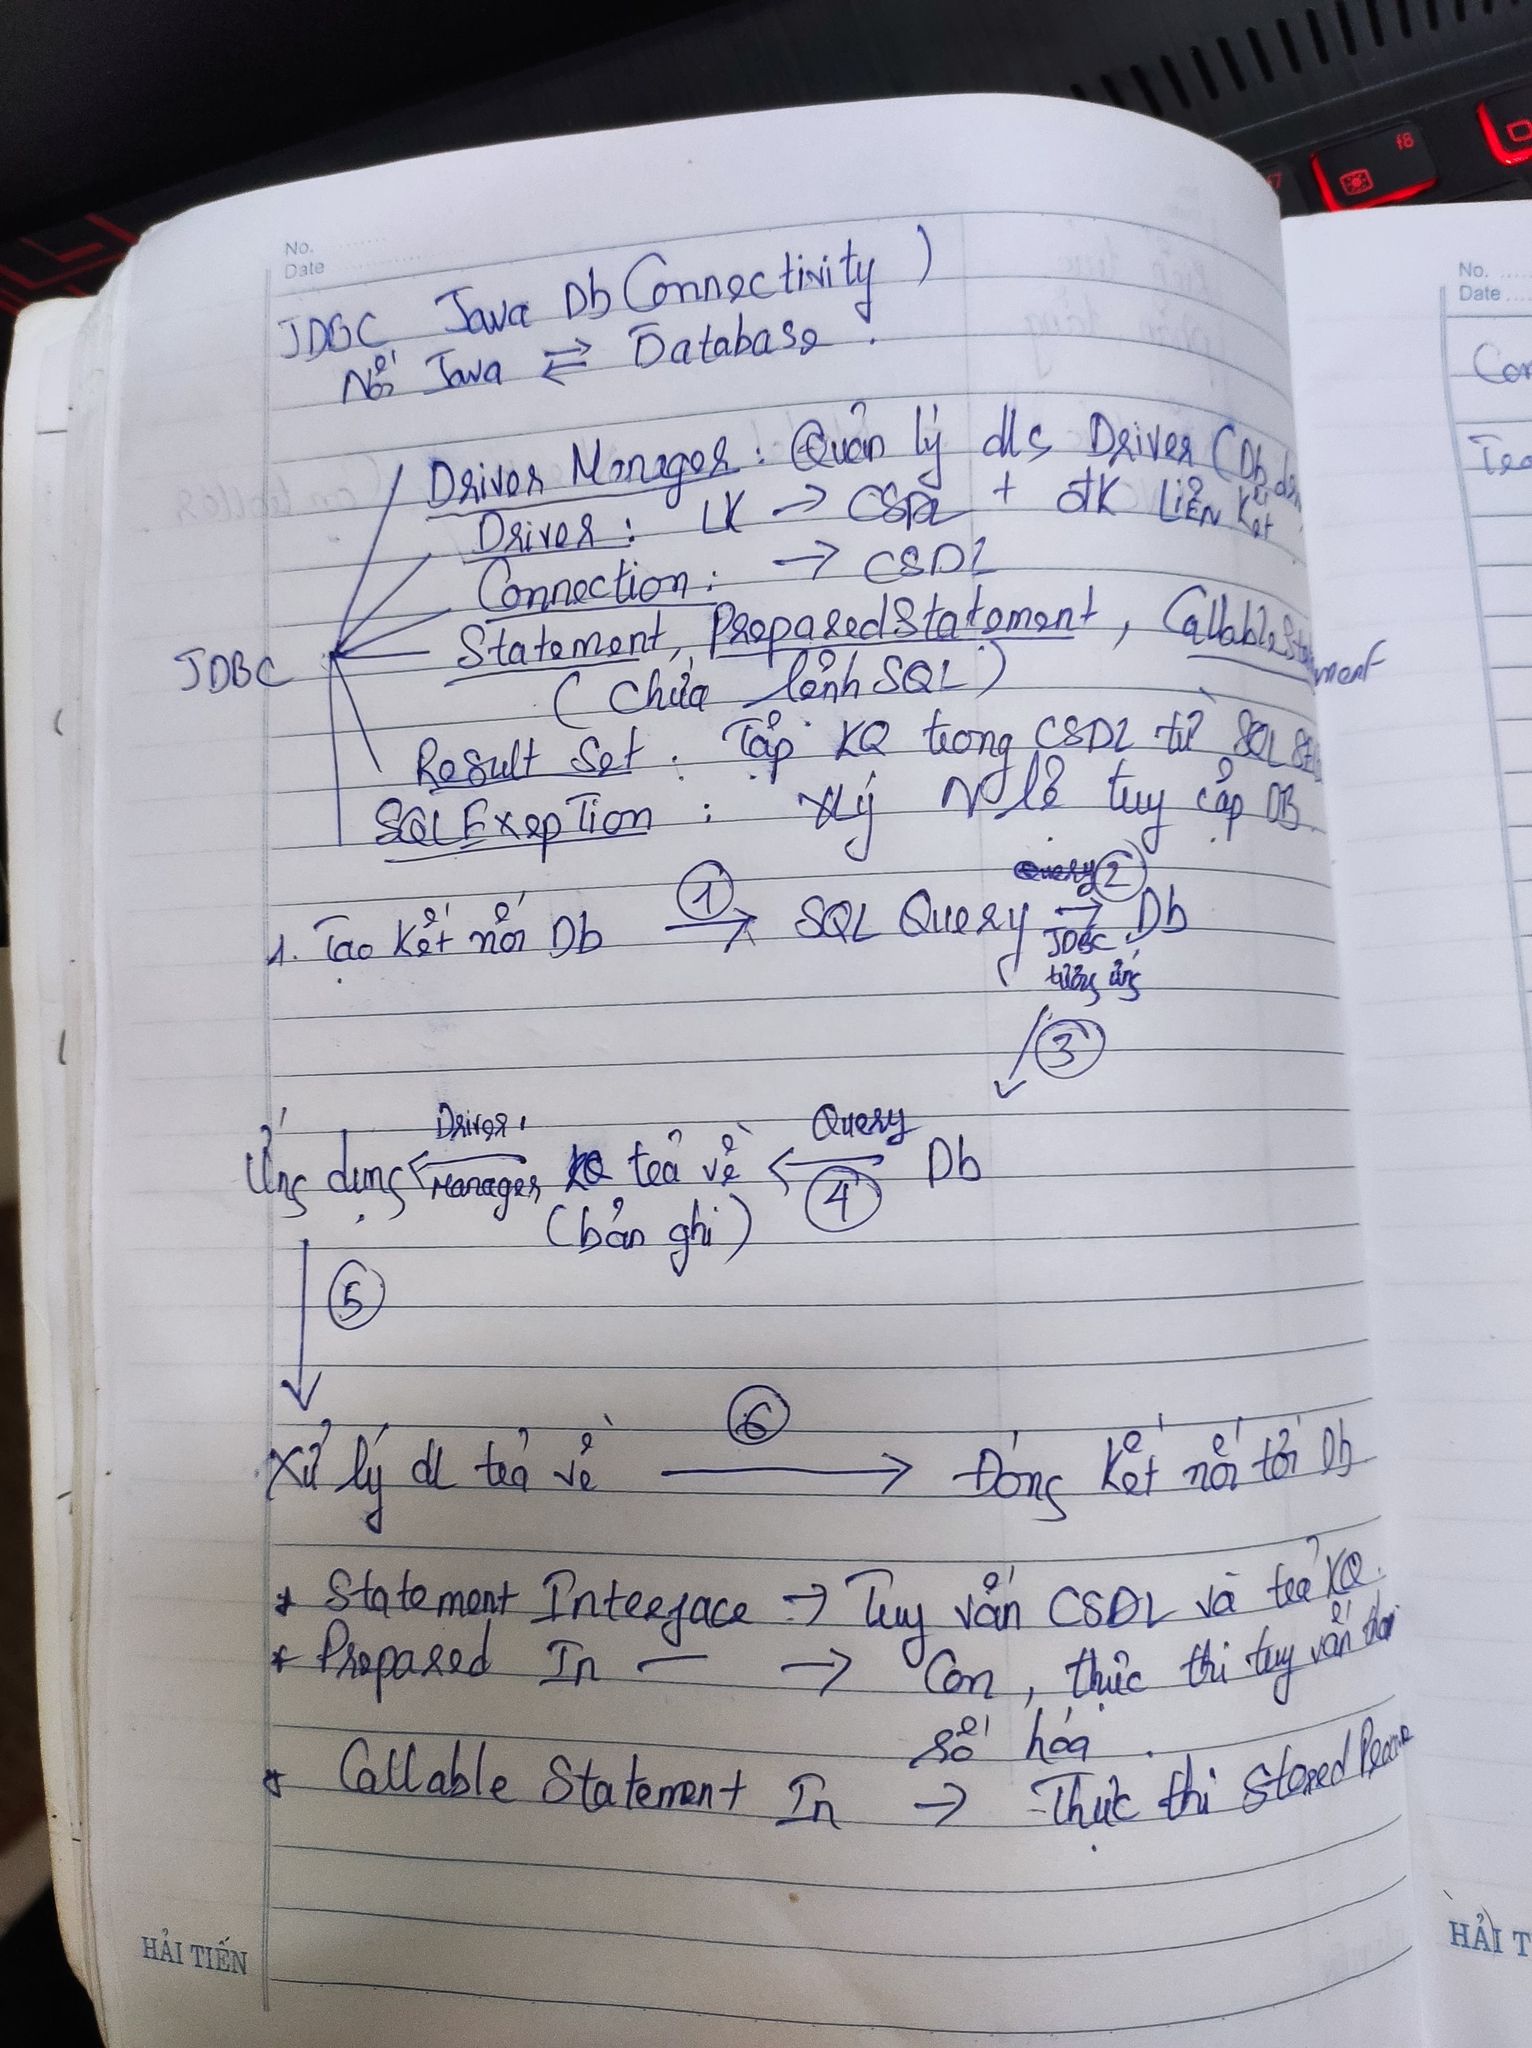 f8
f7
No.
Date
JDBC Java Db Connectivity )
Nối Java ⇄ Database.
Driver Manager: Quản lý ds Driver (Db
Driver: LK → CSDL + ĐK LIÊN Kết
Connection: → CSDL
JDBC
Statement, PreparedStatement, CallableStatement
(Chứa lệnh SQL)
Result Set: Tập KQ trong CSDL từ SQL
SQL Exeption: Xlý N lỗ truy cập DB
1. Tạo kết nối Db ① → SQL Query ② → Db
JDBC
tương ứng
③
Ứng dụng ← Driver Manager KQ trả về ← Query Db
(bản ghi) ④
⑤
Xử lý dl trả về ⑥ → Đóng kết nối tới Db
* Statement Interface → Truy vấn CSDL và trả KQ.
* Prepared In — → Con, thực thi truy vấn
số hóa.
* Callable Statement In → Thực thi Stored
HẢI TIẾN
No.
Date
HẢI T